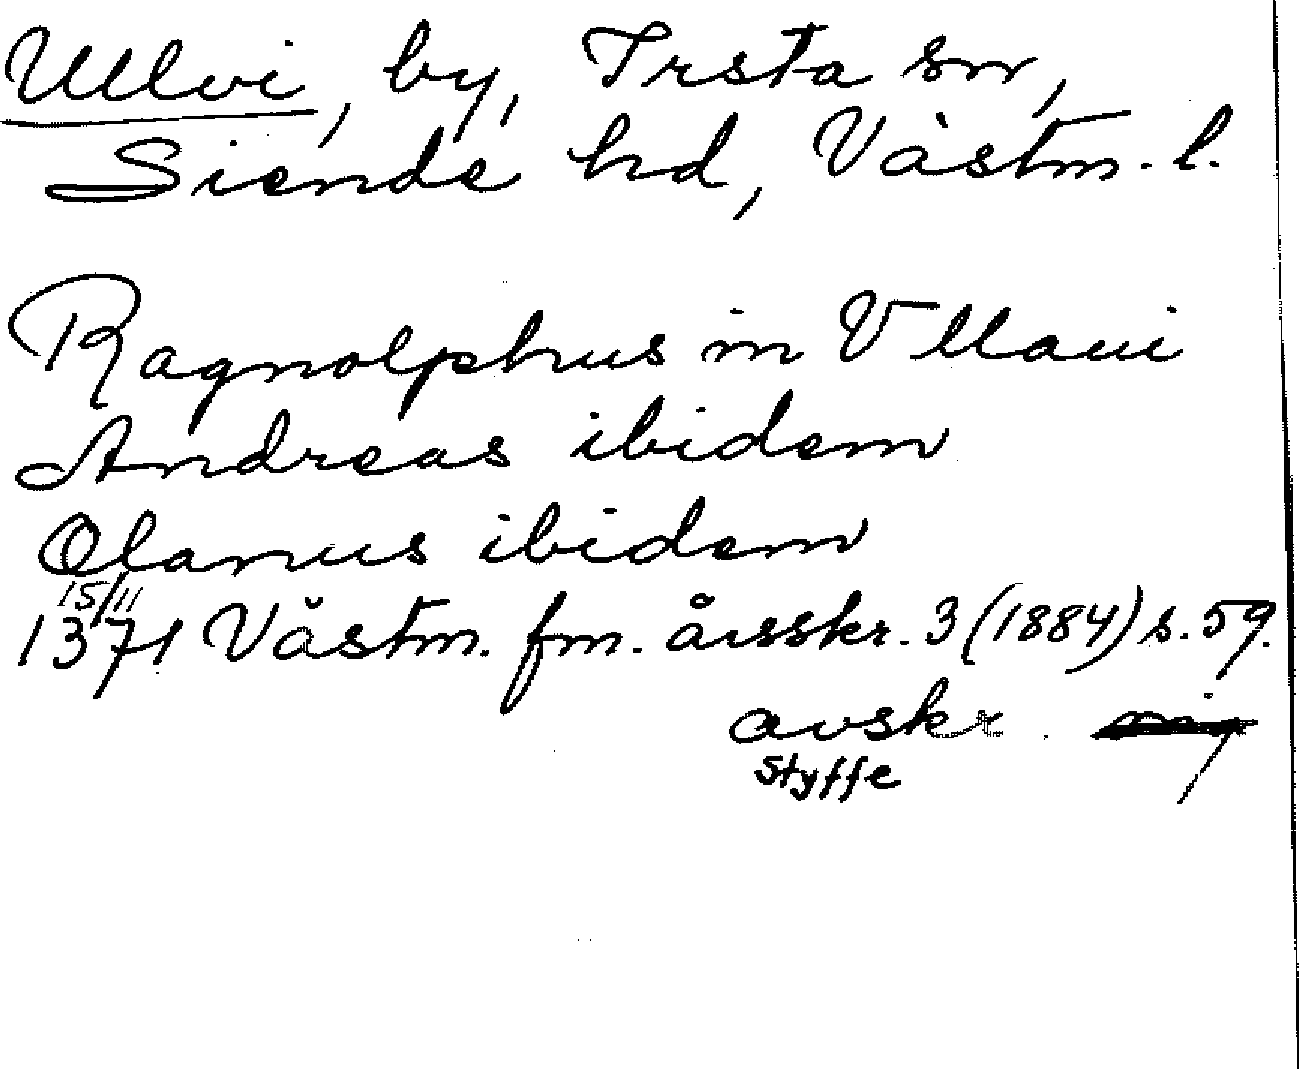 Ullvi, by, Irsta sn,
Siende hd, Västm. l.
Ragnolphus in Vllaui
Andreas ibidem
Olanus ibidem
15/11
1371 Västm. fm. årsskr. 3 (1884) s. 59.
avskr.
Styffe